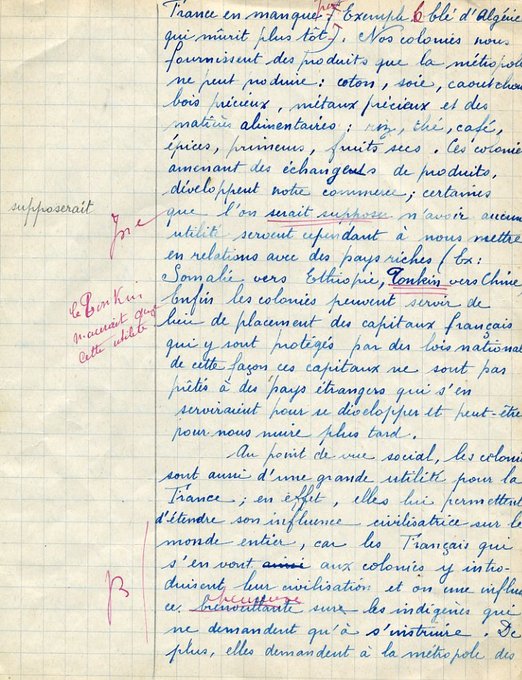 France en manque. Exemple blé d'Algérie
qui mûrit plus tôt). Nos colonies nous
fournissent des produits que la métropole
ne peut produire : coton, soie, caoutchou
bois précieux, métaux précieux et des
matières alimentaires : riz, thé, café,
épices, primeurs, fruits secs. Ces colonie
amenant des échanges de produits,
développent notre commerce ; certaines
supposerait
que l'on serait suppose n'avoir aucun
utilité servent cependant à nous mettre
en relations avec des pays riches (Ex:
Somalie vers Ethiopie, Tonkin vers Chine
le Tonkin
n'aurait que
cette utilité
Enfin les colonies peuvent servir de
lieu de placement des capitaux français
qui y sont protégés par des lois national
de cette façon ces capitaux ne sont pas
prêtés à des pays étrangers qui s'en
serviraient pour se développer et peut-être
pour nous nuire plus tard.
Au point de vue social, les colonie
sont aussi d'une grande utilité pour la
France ; en effet, elles lui permettent
d'étendre son influence civilisatrice sur le
monde entier, car les Français qui
s'en vont ainsi aux colonies y intro-
duisent leur civilisation et on une influe
ce bienveillante sure les indigènes qui
B
ne demandent qu'à s'instruire. De
plus, elles demandent à la métropole des